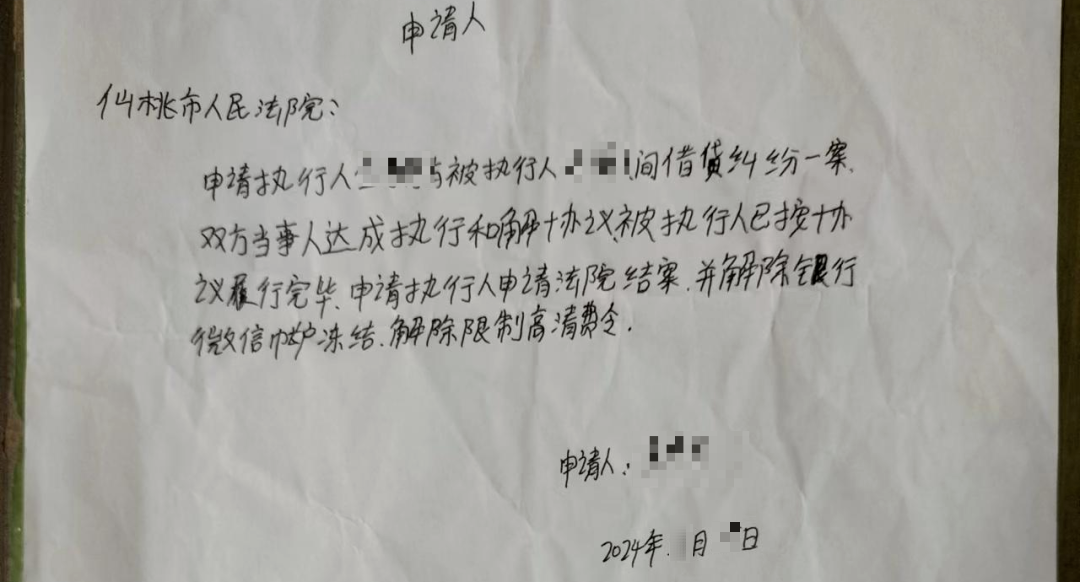 申请人
仙桃市人民法院:
申请执行人与被执行人间借贷纠纷一案.
双方当事人达成执行和解协议,被执行人已按协
议履行完毕、申请执行人申请法院结案.并解除银行
微信帐户冻结.解除限制高消费令.
申请人:
2024年.月日